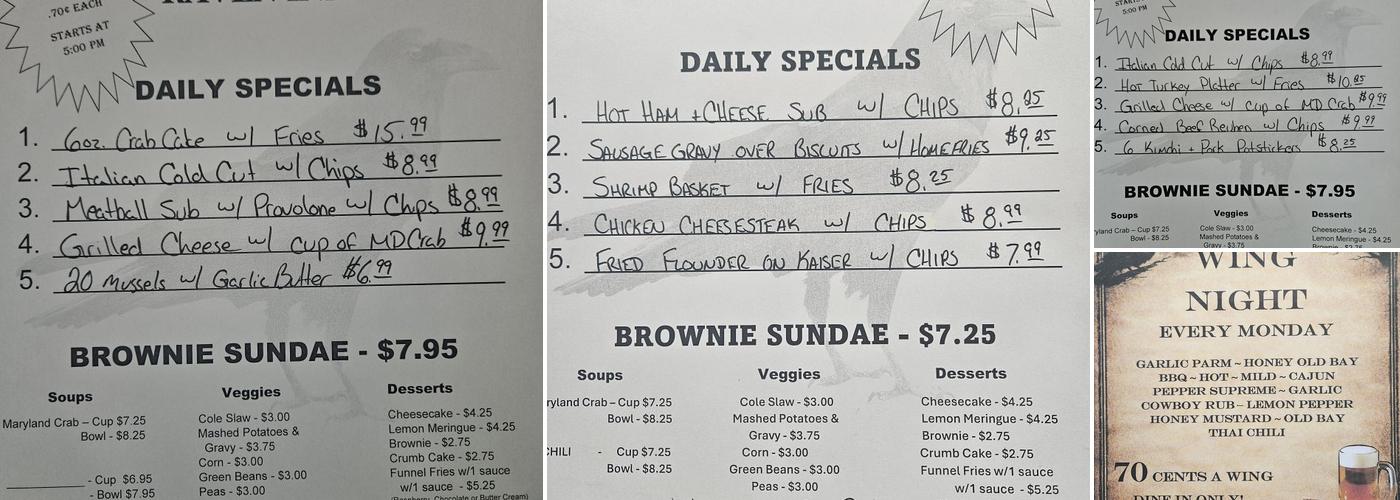 .70¢ EACH
STARTS AT
5:00 PM
DAILY SPECIALS
1. 6oz. Crab Cake w/ Fries $15.99
2. Italian Cold Cut w/ Chips $8.99
3. Meatball Sub w/ Provolone w/ Chips $8.99
4. Grilled Cheese w/ cup of MD Crab $9.99
5. 20 mussels w/ Garlic Butter $6.99
BROWNIE SUNDAE - $7.95
Soups Veggies Desserts
Maryland Crab – Cup $7.25 Cole Slaw - $3.00 Cheesecake - $4.25
Bowl - $8.25 Mashed Potatoes & Lemon Meringue - $4.25
Gravy - $3.75 Brownie - $2.75
Corn - $3.00 Crumb Cake - $2.75
- Cup $6.95 Green Beans - $3.00 Funnel Fries w/1 sauce
- Bowl $7.95 Peas - $3.00 w/1 sauce - $5.25
(Raspberry, Chocolate or Butter Cream)
DAILY SPECIALS
1. HOT HAM + CHEESE SUB w/ CHIPS $8.95
2. SAUSAGE GRAVY OVER BISCUITS w/ HOMEFRIES $9.25
3. SHRIMP BASKET w/ FRIES $8.25
4. CHICKEN CHEESESTEAK w/ CHIPS $8.99
5. FRIED FLOUNDER ON KAISER w/ CHIPS $7.99
BROWNIE SUNDAE - $7.25
Soups Veggies Desserts
ryland Crab – Cup $7.25 Cole Slaw - $3.00 Cheesecake - $4.25
Bowl - $8.25 Mashed Potatoes & Lemon Meringue - $4.25
Gravy - $3.75 Brownie - $2.75
CHILI - Cup $7.25 Corn - $3.00 Crumb Cake - $2.75
Bowl - $8.25 Green Beans - $3.00 Funnel Fries w/1 sauce
Peas - $3.00 w/1 sauce - $5.25
5:00 PM
DAILY SPECIALS
1. Italian Cold Cut w/ Chips $8.99
2. Hot Turkey Platter w/ Fries $10.85
3. Grilled Cheese w/ cup of MD Crab $9.99
4. Corned Beef Reuben w/ Chips $9.99
5. 6 Kimchi + Pork Potstickers $8.25
BROWNIE SUNDAE - $7.95
Soups Veggies Desserts
ryland Crab – Cup $7.25 Cole Slaw - $3.00 Cheesecake - $4.25
Bowl - $8.25 Mashed Potatoes & Lemon Meringue - $4.25
Gravy - $3.75
WING
NIGHT
EVERY MONDAY
GARLIC PARM ~ HONEY OLD BAY
BBQ ~ HOT ~ MILD ~ CAJUN
PEPPER SUPREME ~ GARLIC
COWBOY RUB ~ LEMON PEPPER
HONEY MUSTARD ~ OLD BAY
THAI CHILI
70 CENTS A WING
DINE IN ONLY!